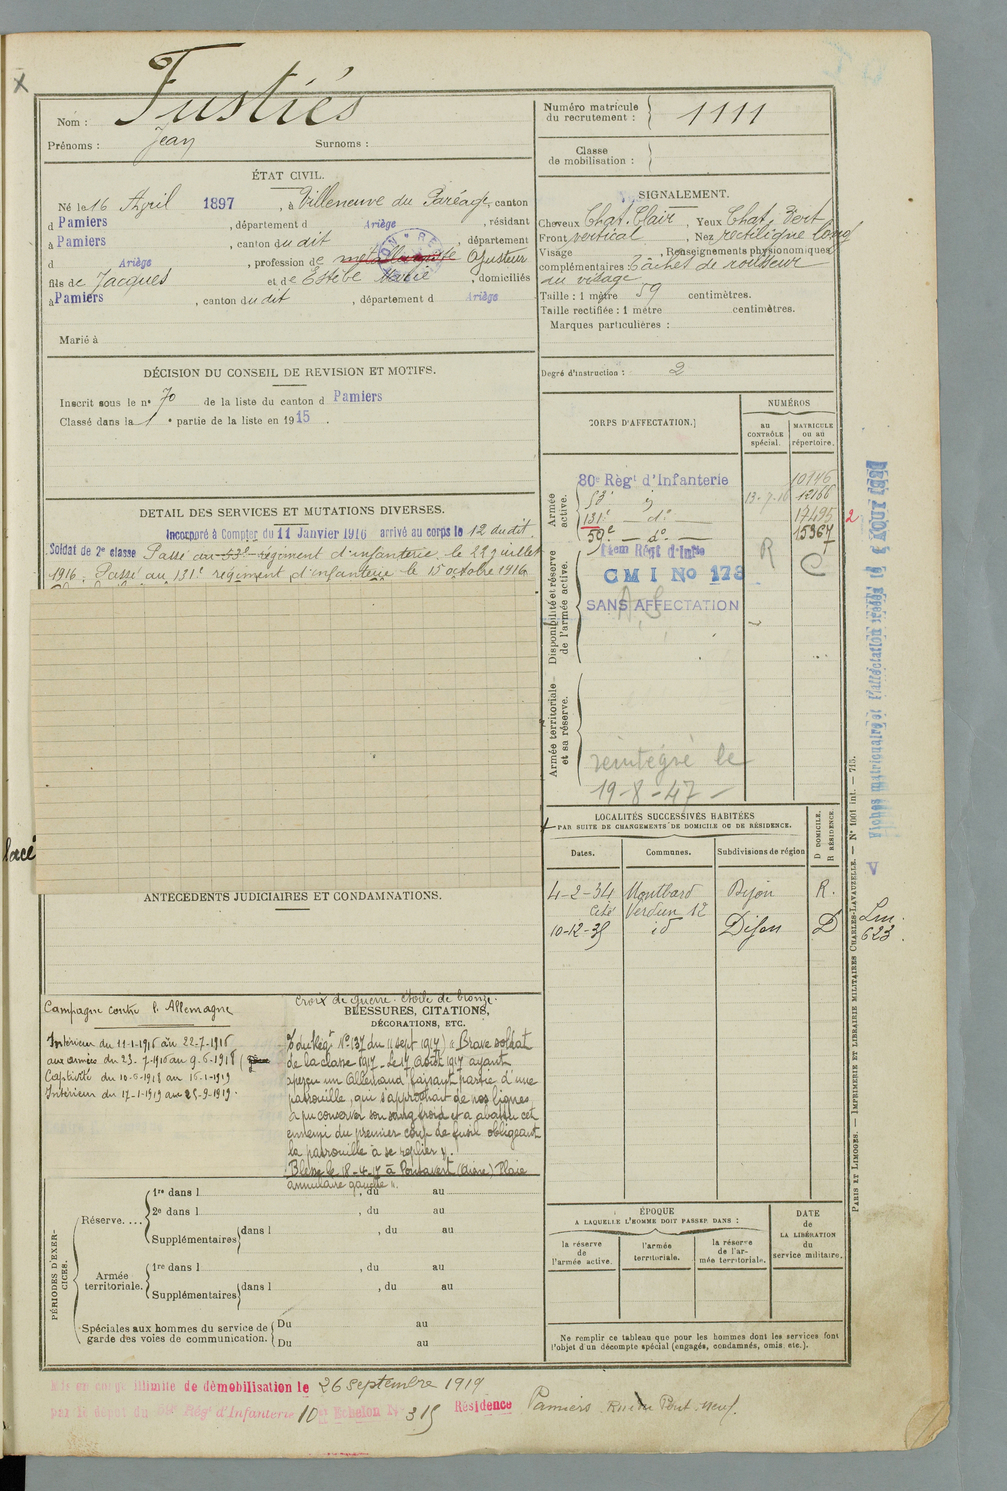 Fustiés
Nom :
Prénoms : Jean Surnoms :
Numéro matricule
du recrutement : 1111
Classe
de mobilisation :
ÉTAT CIVIL.
Né le 16 Avril 1897, à Villeneuve du Paréage, canton
d Pamiers, département d Ariège, résidant
à Pamiers, canton du dit, département
d Ariège, profession de métallurgiste Ajusteur
fils de Jacques et de Estèbe Marie, domiciliés
à Pamiers, canton du dit, département d Ariège
Marié à
SIGNALEMENT.
Cheveux Chat. Clair, Yeux Chat. Vert
Front vertical, Nez rectiligne long
Visage, Renseignements physionomiques
complémentaires : Tâches de rousseur
au visage
Taille : 1 mètre 59 centimètres.
Taille rectifiée : 1 mètre centimètres.
Marques particulières :
Degré d'instruction : 2
DÉCISION DU CONSEIL DE REVISION ET MOTIFS.
Inscrit sous le n° 70 de la liste du canton d Pamiers
Classé dans la 1 e partie de la liste en 1915.
DETAIL DES SERVICES ET MUTATIONS DIVERSES.
Incorporé à Compter du 11 Janvier 1916 arrivé au corps le 12 du dit.
Soldat de 2e classe Passé au 53e régiment d'infanterie le 22 juillet
1916. Passé au 131e régiment d'infanterie le 15 octobre 1916
CORPS D'AFFECTATION.
NUMÉROS
au
CONTRÔLE
spécial.
MATRICULE
ou au
répertoire.
Armée
active.
80e Régt d'Infanterie 10946
53 13-7-16 12166
131e — d° — 17495 2
59e — d° — 15367
Disponibilité et réserve
de l'armée active.
CMI No 173
R C
SANS AFFECTATION
A.S.
Armée territoriale
et sa réserve.
réintégré le
19-8-47
LOCALITÉS SUCCESSIVES HABITÉES
PAR SUITE DE CHANGEMENTS DE DOMICILE OU DE RÉSIDENCE.
Dates. Communes. Subdivisions de région
D DOMICILE.
R RÉSIDENCE.
4-2-34 Montbard Dijon R.
Cité Verdun 12
10-12-35 id Dijon D
Lm.
623.
lacé
ANTÉCÉDENTS JUDICIAIRES ET CONDAMNATIONS.
Campagne contre l'Allemagne
Intérieur du 11-1-1916 au 22-7-1916
aux armées du 23-7-1916 au 9-6-1918
Captivité du 10-6-1918 au 16-1-1919
Intérieur du 17-1-1919 au 25-9-1919.
Croix de guerre. étoile de bronze.
BLESSURES, CITATIONS,
DÉCORATIONS, ETC.
O du Régt N° 137 du 11 sept 1917) « Brave soldat
de la classe 1917. Le 17 août 1917 ayant
aperçu un Allemand faisant partie d'une
patrouille, qui s'approchait de nos lignes
a pu conserver son sang froid et a abattu cet
ennemi du premier coup de fusil obligeant
la patrouille à se replier ».
Blessé le 18-4-17 à Pontavert (Aisne) Plaie
annulaire gauche ».
PÉRIODES D'EXERCICES.
Réserve....
1re dans l , du au
2e dans l , du au
Supplémentaires dans l , du au
Armée
territoriale.
1re dans l , du au
Supplémentaires dans l , du au
Spéciales aux hommes du service de
garde des voies de communication.
Du au
Du au
ÉPOQUE
A LAQUELLE L'HOMME DOIT PASSER DANS :
la réserve
de
l'armée active.
l'armée
territoriale.
la réserve
de l'ar-
mée territoriale.
DATE
de
LA LIBÉRATION
du
service militaire.
Ne remplir ce tableau que pour les hommes dont les services font
l'objet d'un décompte spécial (engagés, condamnés, omis, etc.).
PARIS ET LIMOGES. — IMPRIMERIE ET LIBRAIRIE MILITAIRES CHARLES-LAVAUZELLE. — N° 1001 int. — 715.
Mis en congé illimité de démobilisation le 26 septembre 1919
par le dépôt du Rég' d'Infanterie 10e Echelon N° 315 Résidence Pamiers Rue du Pont-neuf.